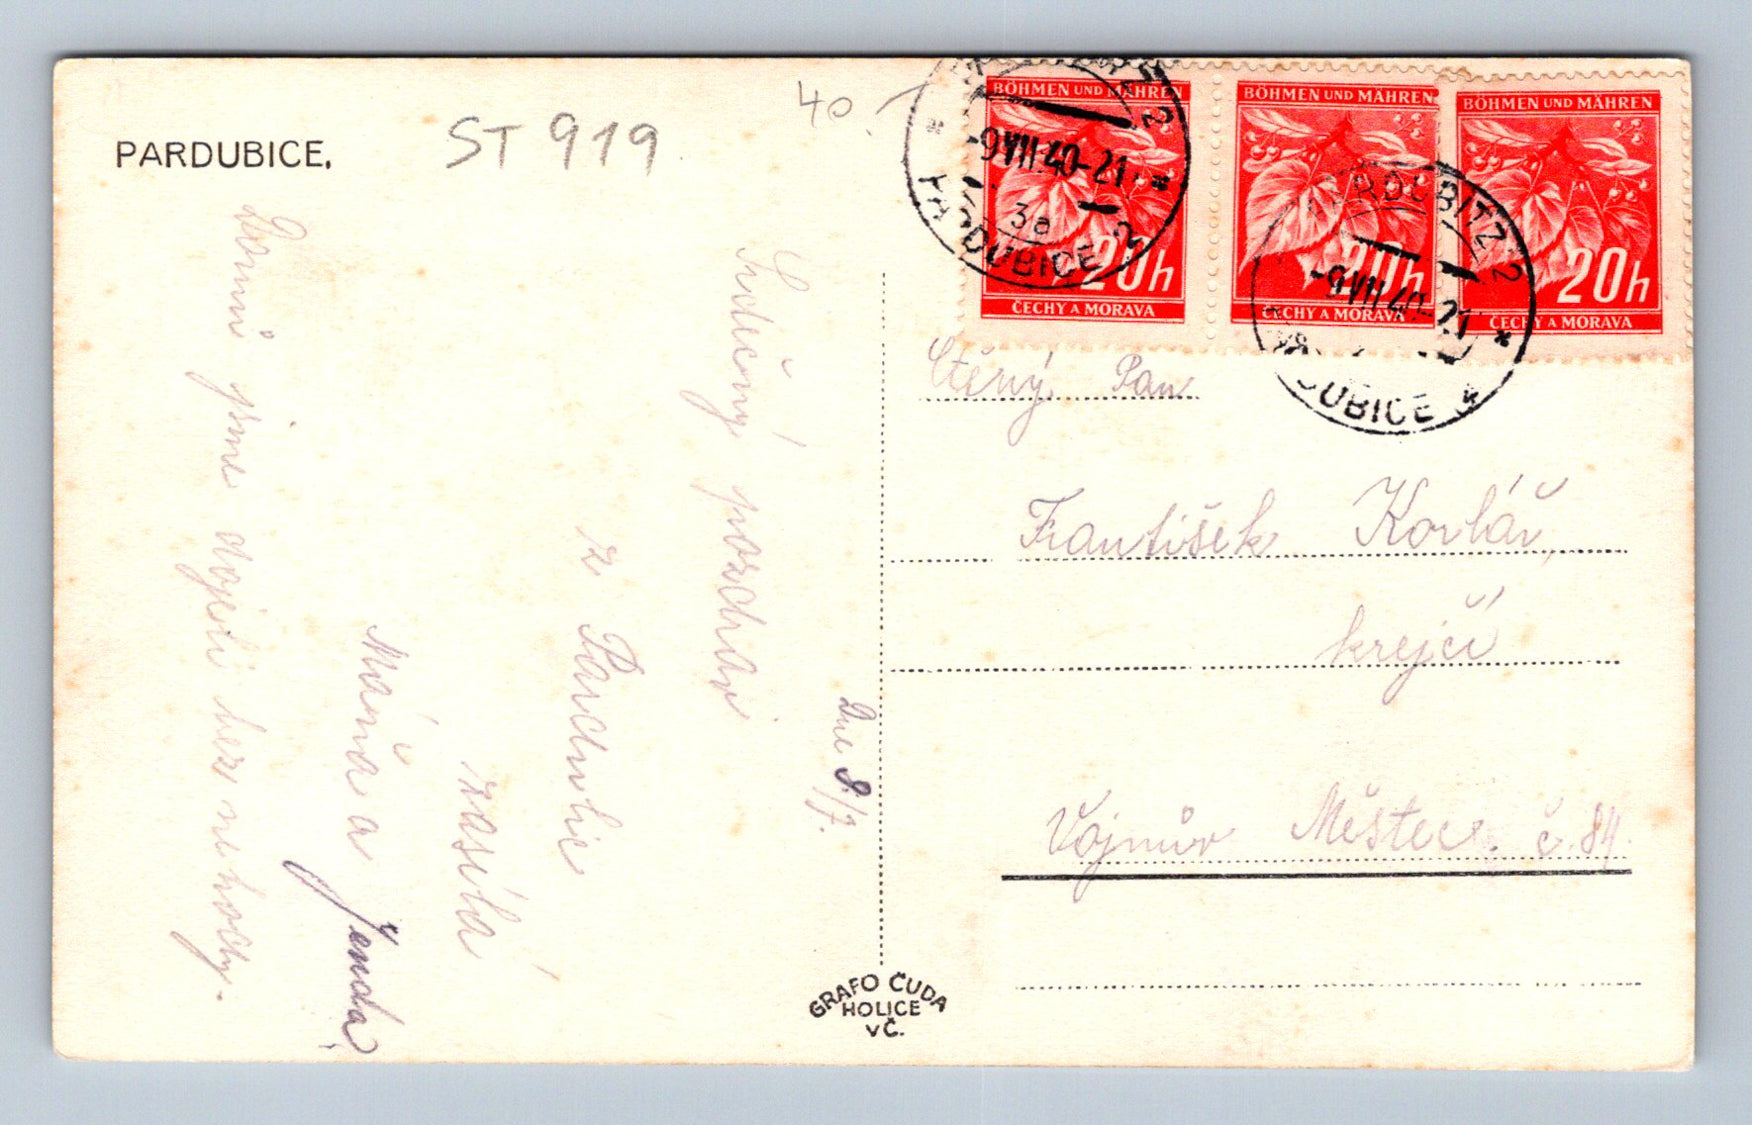 PARDUBICE,
ST 919
40.-
BÖHMEN UND MÄHREN
20h
ČECHY A MORAVA
BÖHMEN UND MÄHREN
20h
ČECHY A MORAVA
BÖHMEN UND MÄHREN
20h
ČECHY A MORAVA
2
-9VII.40-21
3a
PARDUBICE 2
PARDUBITZ 2
-9VII40-21
DUBICE
Dne 8./7.
Srdečný pozdrav
z Pardubic
zasílá
Máňa a Jenda
Domů jsme dojeli bez nehody.
Ctěný Pan
František
krejčí
Vojnův Městec. č. 84.
GRAFO ČUDA
HOLICE
v Č.